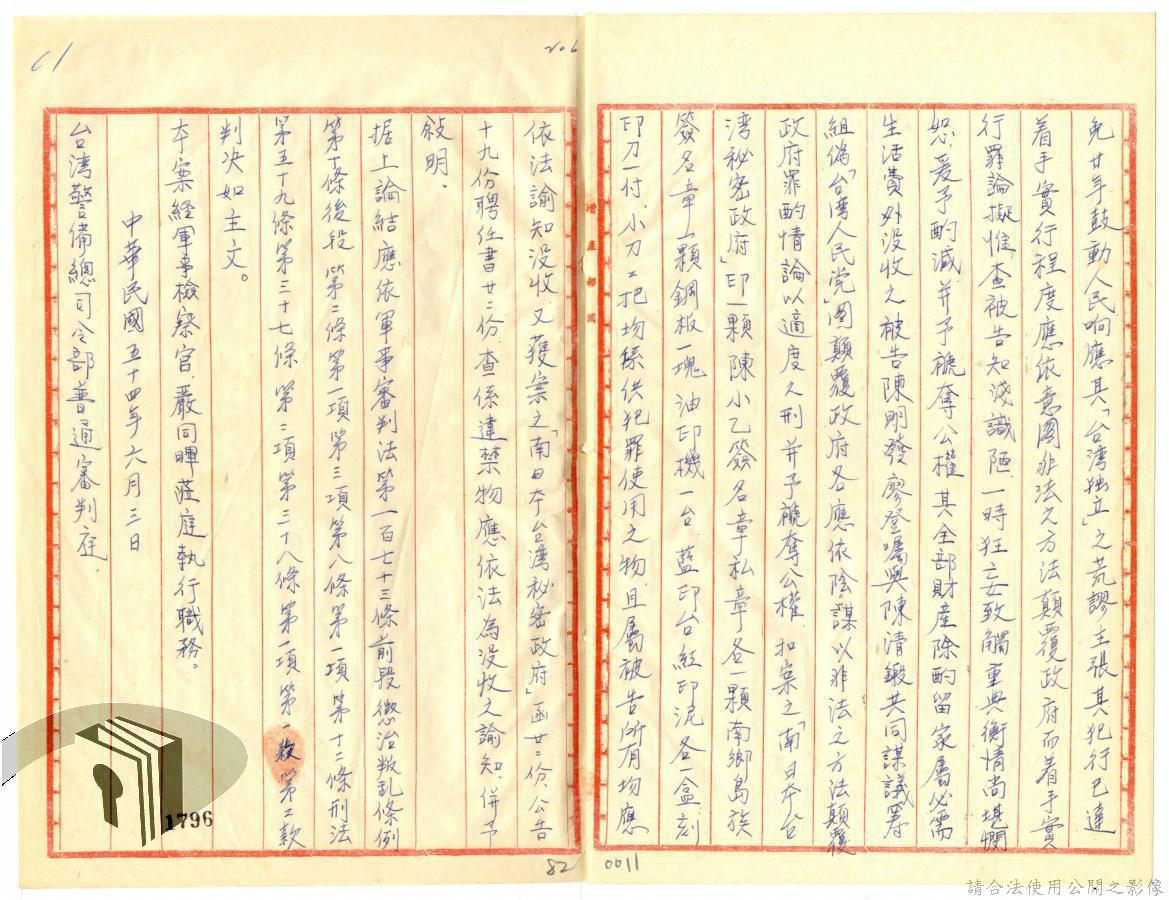 免廿年鼓動人民响應其「台湾独立」之荒謬主張其犯行已達
着手實行程度應依意圖非法之方法顛覆政府而着手實
行罪論擬惟查被告知淺識陋一時狂妄致觸重典衡情尚堪憫
恕，爰予酌减，并予褫奪公權其全部財產除酌留家屬必需
生活費外没收之被告陳明發廖登囑與陳清鍛共同謀議籌
組偽「台湾人民党」圖顛覆政府各應依陰謀以非法之方法顛覆
政府罪酌情論以適度之刑并予褫奪公權，扣案之「南日本台
湾秘密政府」印一顆陳小乙簽名章私章各一顆南鄉島族
簽名章一顆鋼板一塊油印機一台，藍印台紅印泥各一盒，刻
印刀一付，小刀二把均係供犯罪使用之物，且屬被告所有均應
依法諭知没收，又獲案之「南日本台湾秘密政府」函廿二份，公告
十九份聘任書廿二份，查係違禁物應依法為没收之諭知，併予
敍明。
据上論結應依軍事審判法第一百七十三條前段懲治叛乱條例
第十條後段第二條第一項第三項第八條第一項第十二條刑法
第五十九條第三十七條第二項第三十八條第一項第一款第二款
判决如主文。
本案経軍事檢察官嚴同暉蒞庭執行職務。
中華民國五十四年六月三日
台湾警備總司令部普通審判庭。
206
82
0011
1796
請合法使用公開之影像